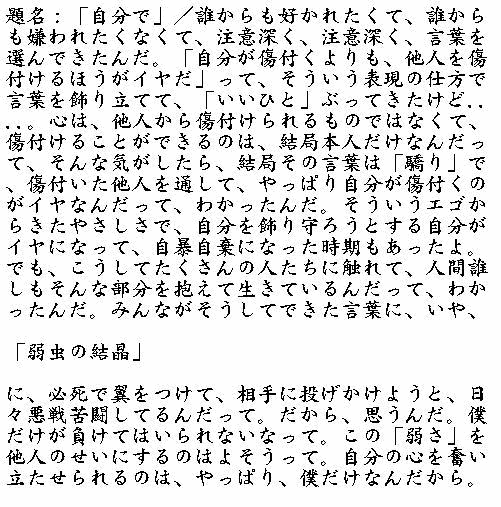 題名：「自分で」／誰からも好かれたくて、誰から
も嫌われたくなくて、注意深く、注意深く、言葉を
選んできたんだ。「自分が傷付くよりも、他人を傷
付けるほうがイヤだ」って、そういう表現の仕方で
言葉を飾り立てて、「いいひと」ぶってきたけど．．
．．。心は、他人から傷付けられるものではなくて、
傷付けることができるのは、結局本人だけなんだっ
て、そんな気がしたら、結局その言葉は「驕り」で
、傷付いた他人を通して、やっぱり自分が傷付くの
がイヤなんだって、わかったんだ。そういうエゴか
らきたやさしさで、自分を飾り守ろうとする自分が
イヤになって、自暴自棄になった時期もあったよ。
でも、こうしてたくさんの人たちに触れて、人間誰
しもそんな部分を抱えて生きているんだって、わか
ったんだ。みんながそうしてできた言葉に、いや、
「弱虫の結晶」
に、必死で翼をつけて、相手に投げかけようと、日
々悪戦苦闘してるんだって。だから、思うんだ。僕
だけが負けてはいられないなって。この「弱さ」を
他人のせいにするのはよそうって。自分の心を奮い
立たせられるのは、やっぱり、僕だけなんだから。